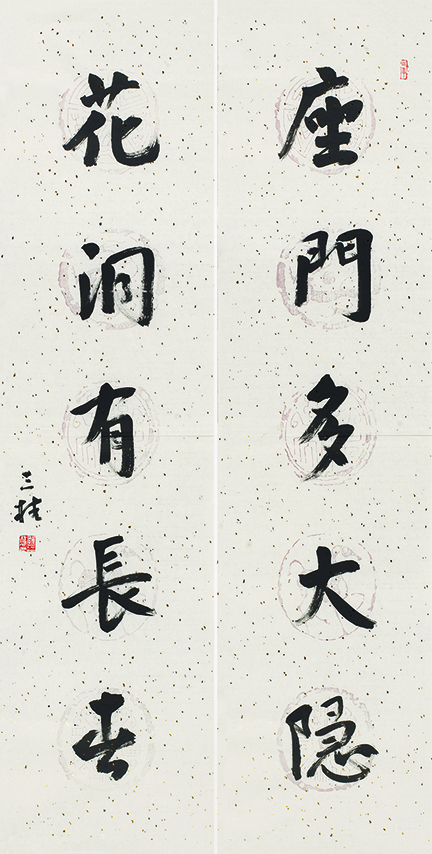 座門多大隐
花洞有長春
三桂